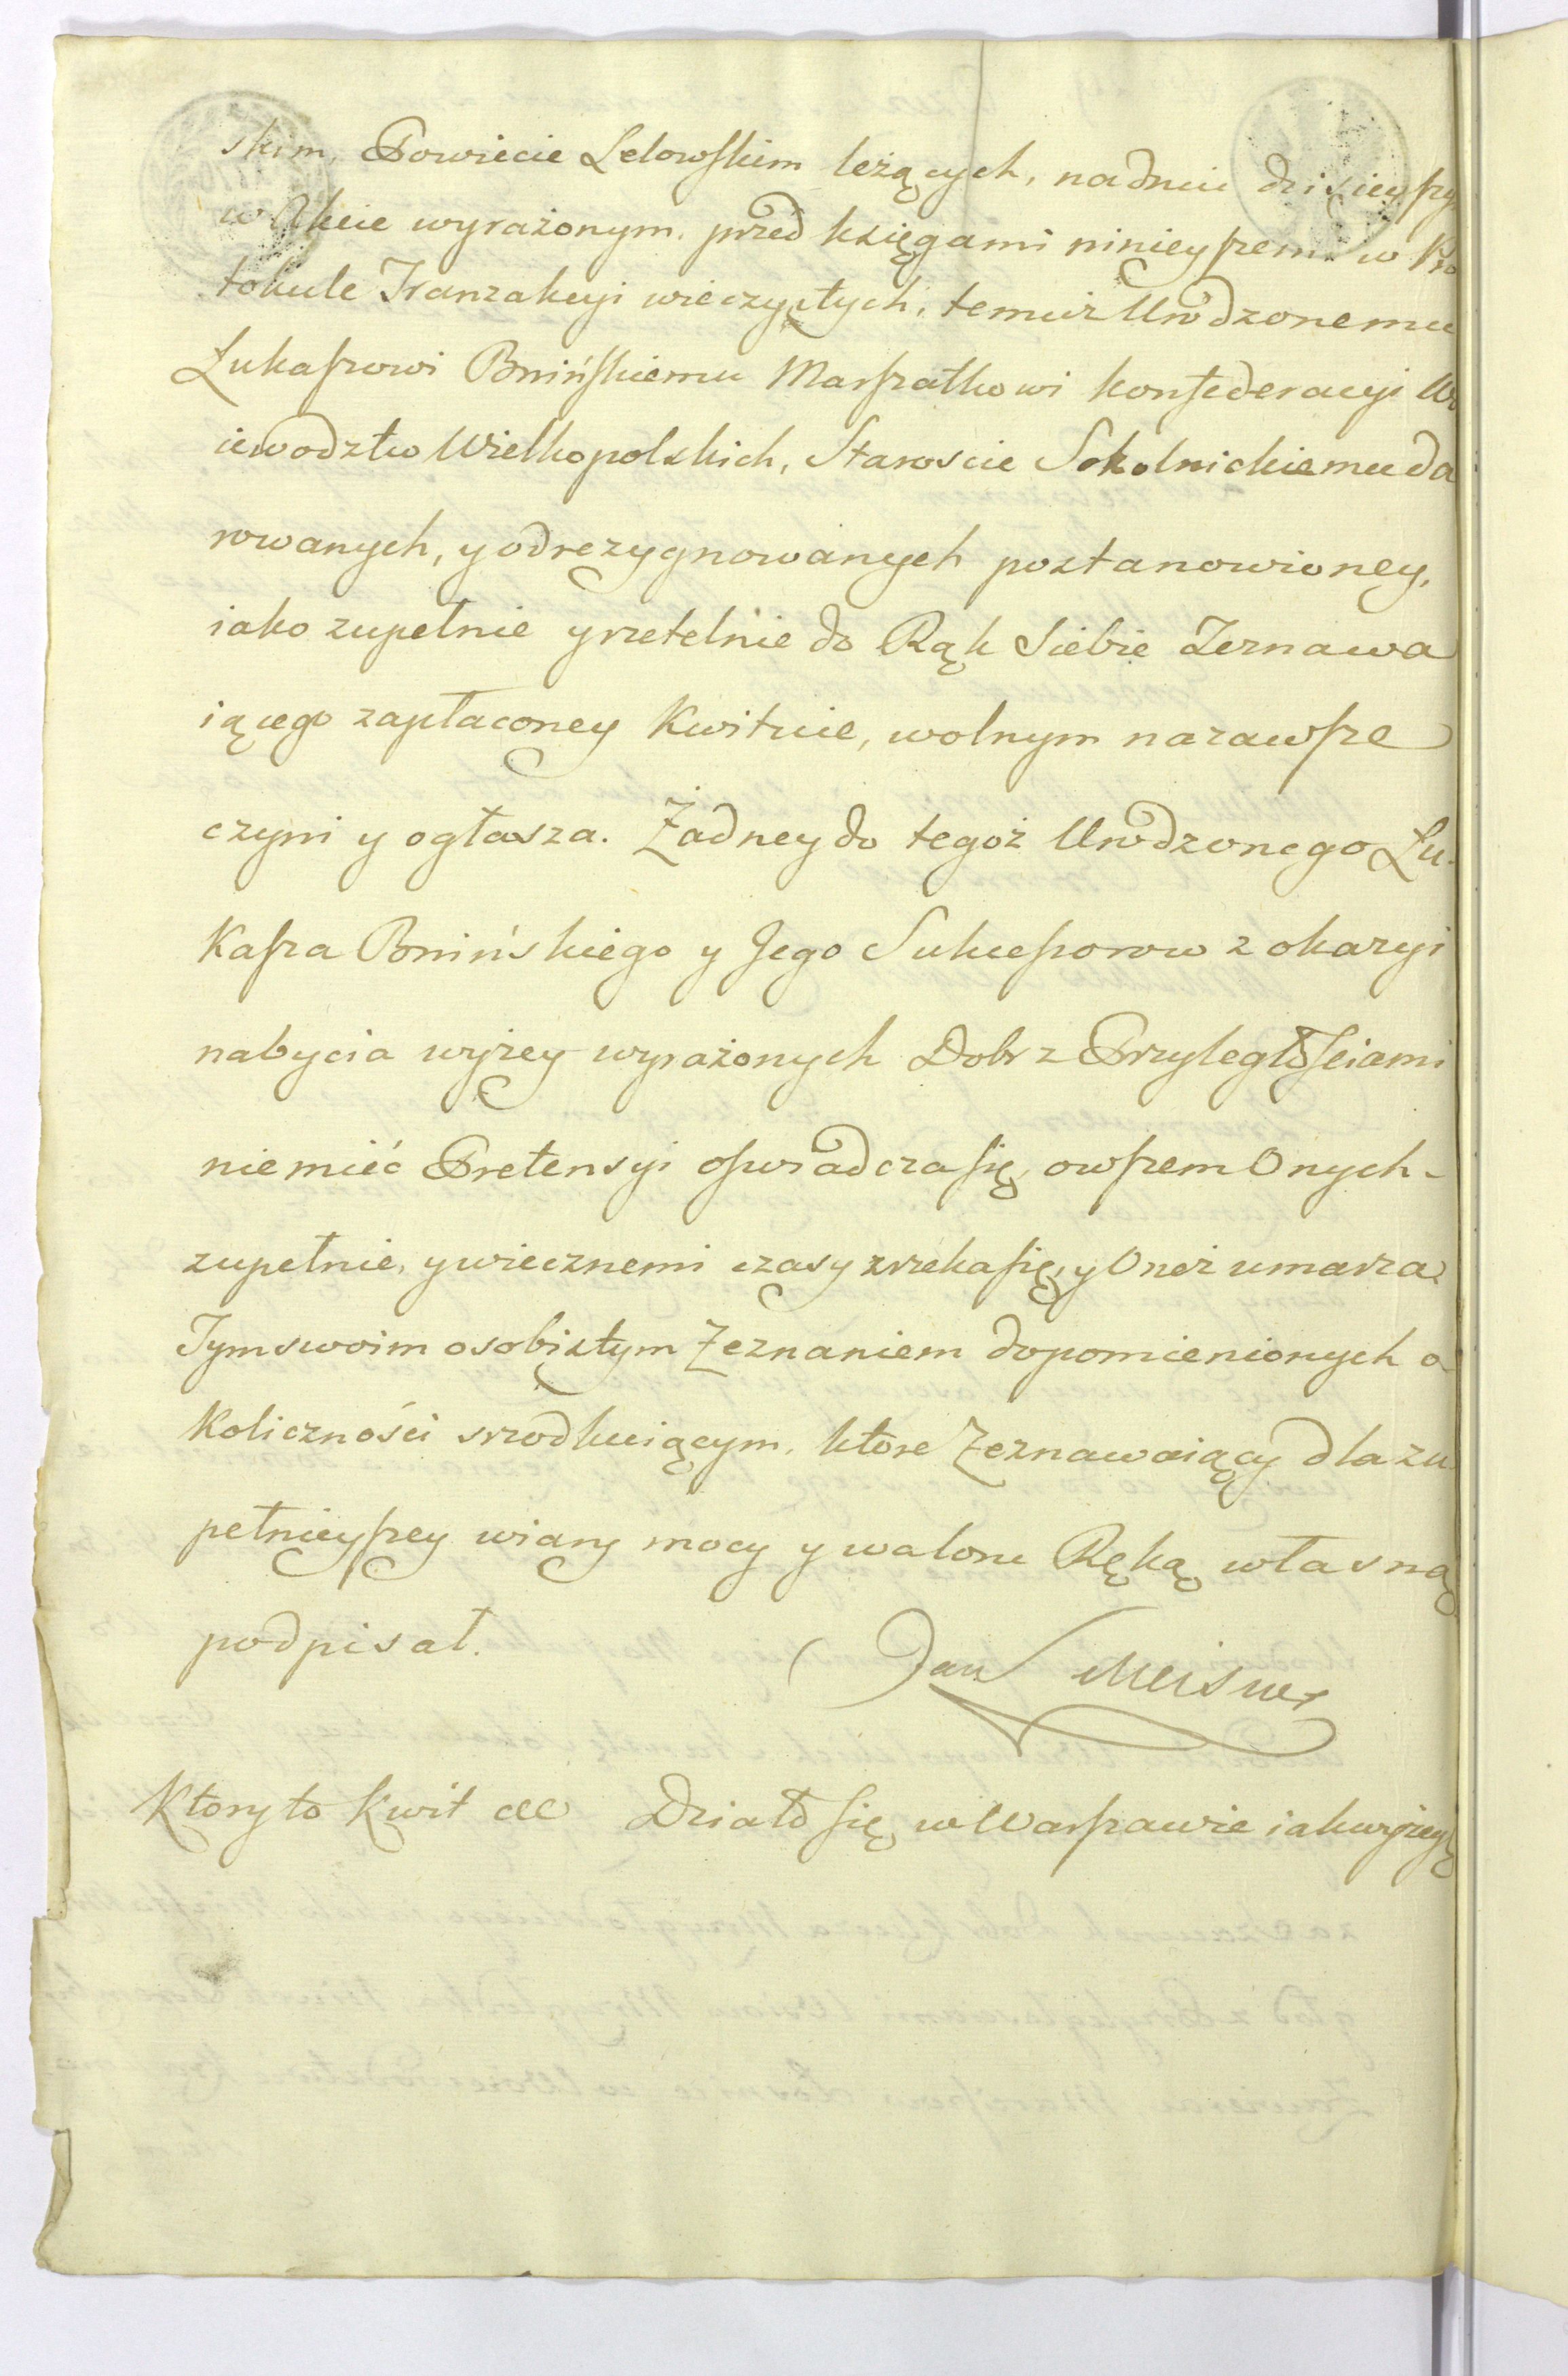 skim, Powiecie Lelowskim leżących, nadniu dzisieyszy
w Akcie wyrażonym. przed księgami ninieyszemi w Pro
tokule Tranzakcyi wieczystych, temuż Urodzonemu
Łukaszowi Bnińskiemu Marszałkowi konfederacyi Wo
iewodztw Wielkopolskich, Staroscie Sokolnickiemu da
rowanych, y odrezygnowanych postanowioney,
iako zupełnie y rzetelnie do Rąk Siebie Zeznawa
iącego zapłaconey Kwituie, wolnym nazawsze
czyni y ogłasza. Żadney do tegoż Urodzonego Łu-
Kasza Bnińskiego y Jego Sukcessorow z okazyi
nabycia wyżey wyrażonych Dobr z Przyległościami
niemieć Pretensyi oswiadcza się, owszem Onych-
zupełnie, y wiecznemi czasy zrzeka się, y Oneż umarza
Tym swoim osobistym Zeznaniem dopomienionych o
Koliczności srzodkuiącym. które Zeznawaiący dla zu
pełnieyszey wiary mocy y waloru Ręką własną
podpisał.
Jan Meisner
Ktory to Kwit etc Działo się w Warszawie iak wyżey